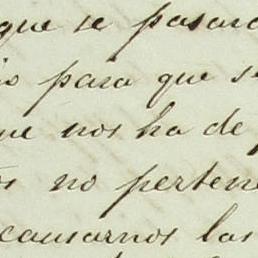 que se pasara
io para que se
ue nos ha de
os no pertene
causarnos las